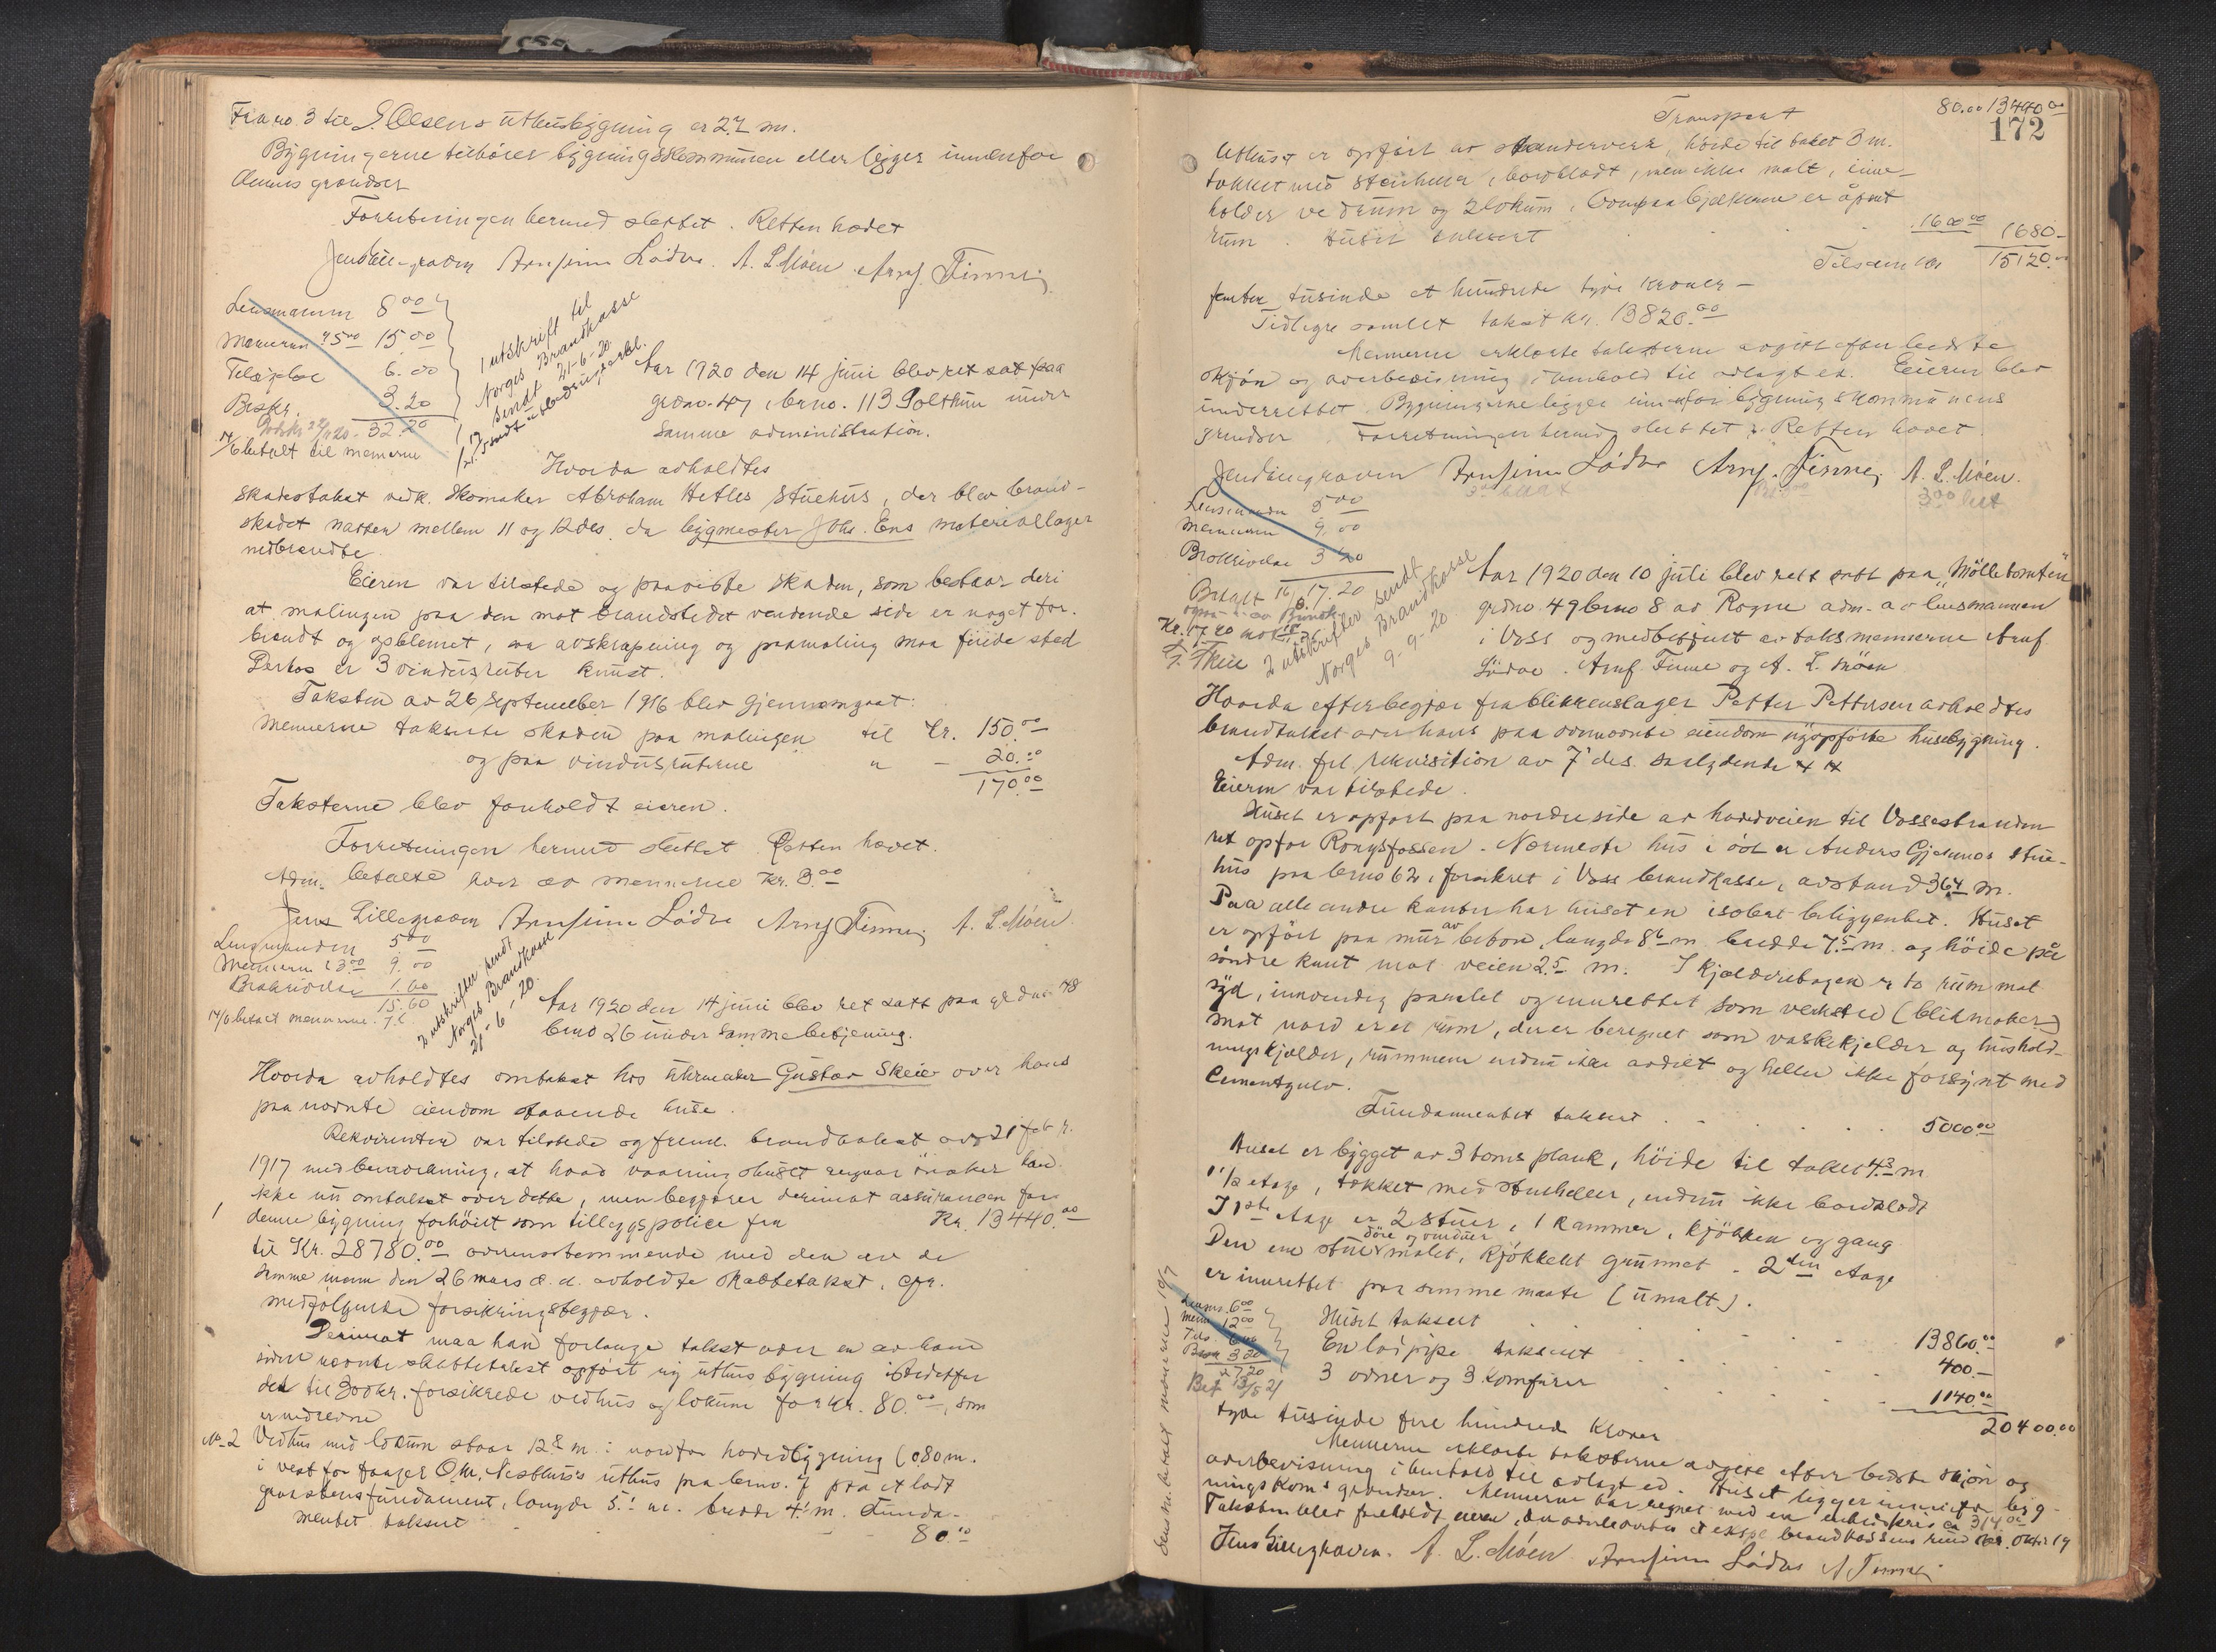 Fra no. 3 til S. Olsens uthusbygning er 27 m.
Bygningerne tilhører bygningskommunen eller ligger innenfor
dennes grændser
Forretningen hermed sluttet. Retten hævet
Jens Lillegraven Arnfinn Lødve. A. L. Møen Arnf. Finne
Lensmannen 8 00
Mennerne à 5 00 15.00
Tilsigelse 6.00
Beskr. 3.20
32.20
14/6 betalt til mennerne
1 utskrift til
Norges Brandkasse
sendt 21-6-20.
Aar 1920 den 14 juni blev ret sat paa
grdno. 47, brno. 113 Solthun under
samme administration.
Hvorda avholdtes
skadestakst vedk. skomaker Abraham Hetles stuehus, der blev brand-
skadet natten mellem 11 og 12 des. da bygmester Johs. Ens materiallager
nedbrendte.
Eieren var tilstede og paaviste skaden, som bestaar deri
at malingen paa den mot brandstedet vendende side er noget for-
brendt og opblemet, saa avskrapning og paamaling maa finde sted
Desuten er 3 vindusruter knust.
Taksten av 26 september 1916 blev gjennemgaat:
Mennerne takserte skaden paa malingen til Kr. 150.00
og paa vindusruterne " - 20.00
170.00
Taksterne blev foreholdt eieren.
Forretningen hermed sluttet. Retten hævet.
Adm. betalte hver av mennerne Kr. 3.00
Jens Lillegraven Arnfinn Lødve Arnf Finne A. L. Møen.
Lensmanden 5 00
Mennerne à 3.00 9.00
Beskrivelse 1.60
15.60
14/6 betalt mennerne. J.L.
2 utskrifter sendt
Norges Brandkasse
21-6-20.
Aar 1920 den 14 juni blev ret satt paa grdno 48
brno 26 under samme betjening.
Hvorda avholdtes omtakst hos uhrmaker Gustav Skeie over hans
paa nævnte eiendom staaende huse.
Rekvirenten var tilstede og freml. brandtakst av 21 febr.
1917 med bemerkning, at hvad vaaningshuset angaar ønsker han
ikke nu omtakst over dette, men begjærer derimot assurancen for
1 denne bygning forhøiet som tillægspolice fra Kr. 13440.00
til Kr. 28780.00 overensstemmende med den av de
samme menn den 26 mars d. a. avholdte skattetakst, cfr.
medfølgende forsikringsbegjær.
Derimot maa han forlange takst over en av ham
siden nævnte skattetakst opført ny uthusbygning istedetfor
det til 300 kr. forsikrede vedhus og lokum for Kr. 80.00, som
er nedrevne
No. 2 Vedhus med lokum staar 12.8 m. i nord for hovedbygning (0.80 m.
i vest for faager O. M. Nesthus's uthus paa brno. 7 paa et lødt
graastensfundament, længde 5.1 m. bredde 4.1 m. Funda-
mentet taksert 80.00
Transport 80.00 13440.00
172
Uthuset er opført av standerverk, høide til taket 3 m.
tækket med stenheller, bordklædt, men ikke malt, inne-
holder vedrum og 2 lokum. Ovenpaa bjelkerne er åpent
rum. Huset taksert 1600.00 1680.-
Tilsammen 15120.-
femten tusinde et hundrede tyve kroner -
Tidligre samlet takst kr. 13820.00
Mennerne erklærte taksterne avgitt efter bedste
skjøn og overbevisning i henhold til avlagt ed. Eieren blev
underrettet. Bygningerne ligger innenfor bygningskommunens
grendser. Forretningen hermed sluttet. Retten hævet.
Jens Lillegraven Arnfinn Lødve Arnf. Finne, A. L. Møen.
3.00 bet
Lensmanden 5 00
Mennerne 9.00
Beskrivelse 3 20
17.20
Betalt
G. Skeie
2 utskrifter sendt
Norges Brandkasse
9-9-20
Aar 1920 den 10 juli blev rett satt paa "Mølletomten"
grdno 49 brno 8 av Rogne adm. av lensmannen
i Voss og medbetjent av taksmennerne Arnf.
Lødve. Arnf. Finne og A. L. Møen
Hvorda efter begjær fra blikkenslager Petter Pettersen avholdtes
brandtakst over hans paa ovennævnte eiendom nyopførte husebygning.
Adm. frl. rekvisition av 7' des. saalydende
Eieren var tilstede.
Huset er opført paa nordre side av hovedveien til Vossestranden
ret opfor Rongsfossen. Nærmeste hus i øst er Anders Gjelmos stue-
hus paa brno 62, forsikret i Voss brandkasse, avstand 36.4 m.
Paa alle andre kanter har huset en isolert beliggenhet. Huset
er opført paa mur av beton, længde 8.6 m bredde 7.5 m. og høide på
søndre kant mot veien 2.5 m. I kjelderetagen er to rum mot
syd, innvendig panelet og innrettet som verksted (blikmaker)
mot nord er et rum, der er beregnet som vaskekjelder og hushold-
ningskjelder, rummene endnu ikke avdelt og heller ikke forsynt med
Cementgulv.
Fundamentet taksert 5000.00
Huset er bygget av 3 toms plank, høide til taket 4.3 m
1 1/2 etage, tækket med stenheller, endnu ikke bordklædt
I 1ste etage er 2 stuer, 1 kammer, kjøkken og gang
Den ene stue døre og vinduer malet, kjøkkenet grunnet. 2den etage
er innrettet paa samme maate (umalt).
Lensm. 6.00
Menn 12.00
Tils. 6.00
Beskr 3 20
27.20
Bet 13/5 21
Huset taksert 13860.00
En løipipe taksert 400.-
3 ovner og 3 komfurer 1140.00
20400.00
tyve tusinde fire hundred Kroner
Mennerne erklærte taksterne avgitt efter bedste skjøn og
overbevisning i henhold til avlagt ed. Huset ligger innenfor byg-
ningskoms grændser. Mennerne har regnet med en enhetspris ca 314.00
Taksten blev foreholdt eieren,
Jens Lillegraven. A. L. Møen Arnfinn Lødve A Finne